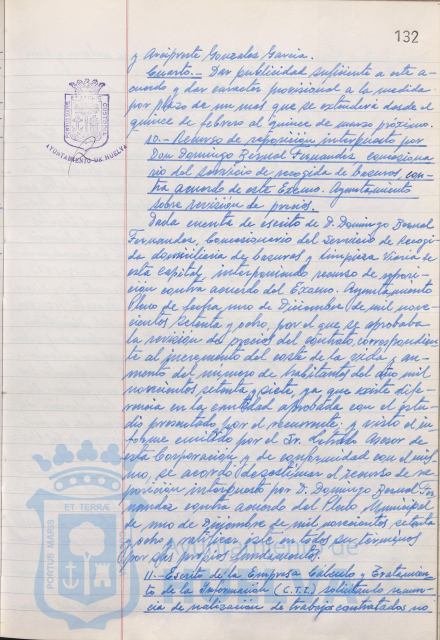 132
y Arcipreste Gonzalez Garcia.
Cuarto.- Dar publicidad suficiente a este a-
cuerdo y dar caracter provisional a la medida
por plazo de un mes que se extenderá desde el
quince de febrero al quince de marzo próximo.
10.- Recurso de reposición interpuesto por
Don Domingo Bernal Fernandez concesiona-
rio del servicio de recogida de basuras, con-
tra acuerdo de este Excmo. Ayuntamiento
sobre revisión de precios.
Dada cuenta de escrito de D. Domingo Bernal
Fernandez, Concesionario del Servicio de Recogi-
da domiciliaria de Basuras y Limpieza Viaria de
esta Capital, interponiendo recurso de reposi-
ción contra acuerdo del Excmo. Ayuntamiento
Pleno de fecha uno de Diciembre de mil nove-
cientos setenta y ocho, por el que se aprobaba
la revisión de precios del contrato, correspondien-
te al incremento del coste de la vida y au-
mento del número de habitantes del año mil
novecientos setenta y siete, ya que existe dife-
rencia en la cantidad aprobada con el estu-
dio presentado por el recurrente; y visto el in-
forme emitido por el Sr. Letrado Asesor de
esta Corporación y de conformidad con el mis-
mo, se acordó desestimar el recurso de re-
posición interpuesto por D. Domingo Bernal Fer-
nandez contra acuerdo del Pleno Municipal
de uno de Diciembre de mil novecientos setenta
y ocho y ratificar éste en todos sus términos
por sus propios fundamentos.
11.- Escrito de la Empresa Cálculo y Tratamien-
to de la Información (C.T.I.) solicitando renun-
cia de realización de trabajos contratados no
AYUNTAMIENTO DE HUELVA
PORTUS MARIS
ET TERRAE
de